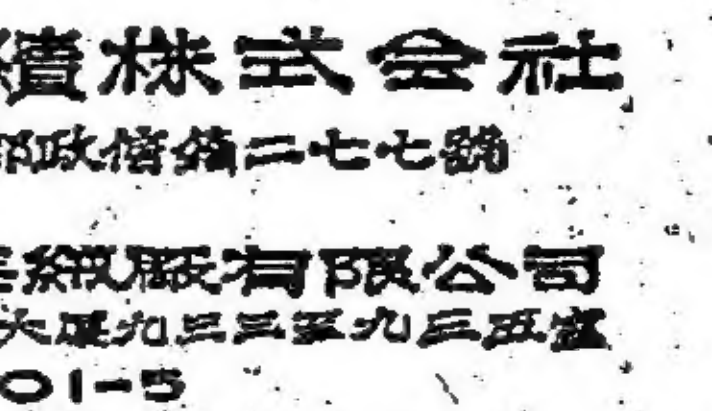 績株式会社
郵政信箱二七七號
絲廠有限公司
大厦九三三至九三五室
01-5